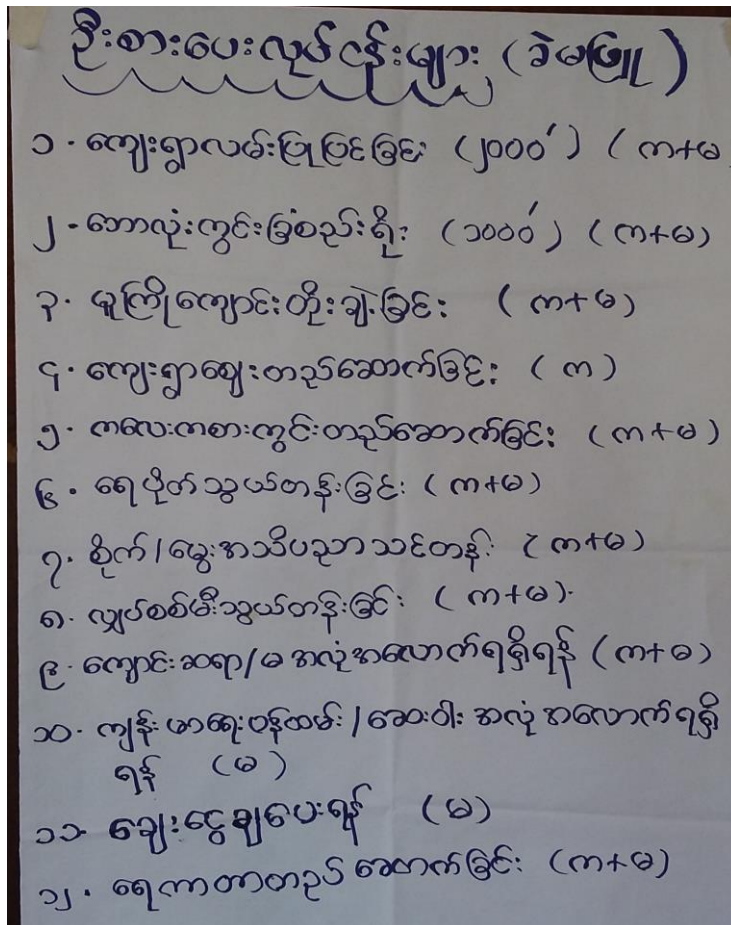 ဦးစားပေးလုပ်ငန်းများ (ခဲမဖြူ)
၁. ကျေးရွာလမ်းပြုပြင်ခြင်း (၂၀၀၀') (က+မ
၂. ဘောလုံးကွင်းခြံစည်းရိုး (၁၀၀၀') (က+မ)
၃. မူကြိုကျောင်းတိုးချဲ့ခြင်း (က+မ)
၄. ကျေးရွာဈေးတည်ဆောက်ခြင်း (က)
၅. ကလေးကစားကွင်းတည်ဆောက်ခြင်း (က+မ)
၆. ရေပိုက်သွယ်တန်းခြင်း (က+မ)
၇. စိုက်/မွေးအသိပညာသင်တန်း (က+မ)
၈. လျှပ်စစ်မီးသွယ်တန်းခြင်း (က+မ).
၉. ကျောင်းဆရာ/မ အလုံအလောက်ရရှိရန် (က+မ)
၁၀. ကျန်းမာရေးဝန်ထမ်း/ဆေးဝါး အလုံအလောက်ရရှိ
ရန် (မ)
၁၁- ချေးငွေချပေးရန် (မ)
၁၂. ရေကာတာတည်ဆောက်ခြင်း (က+မ)